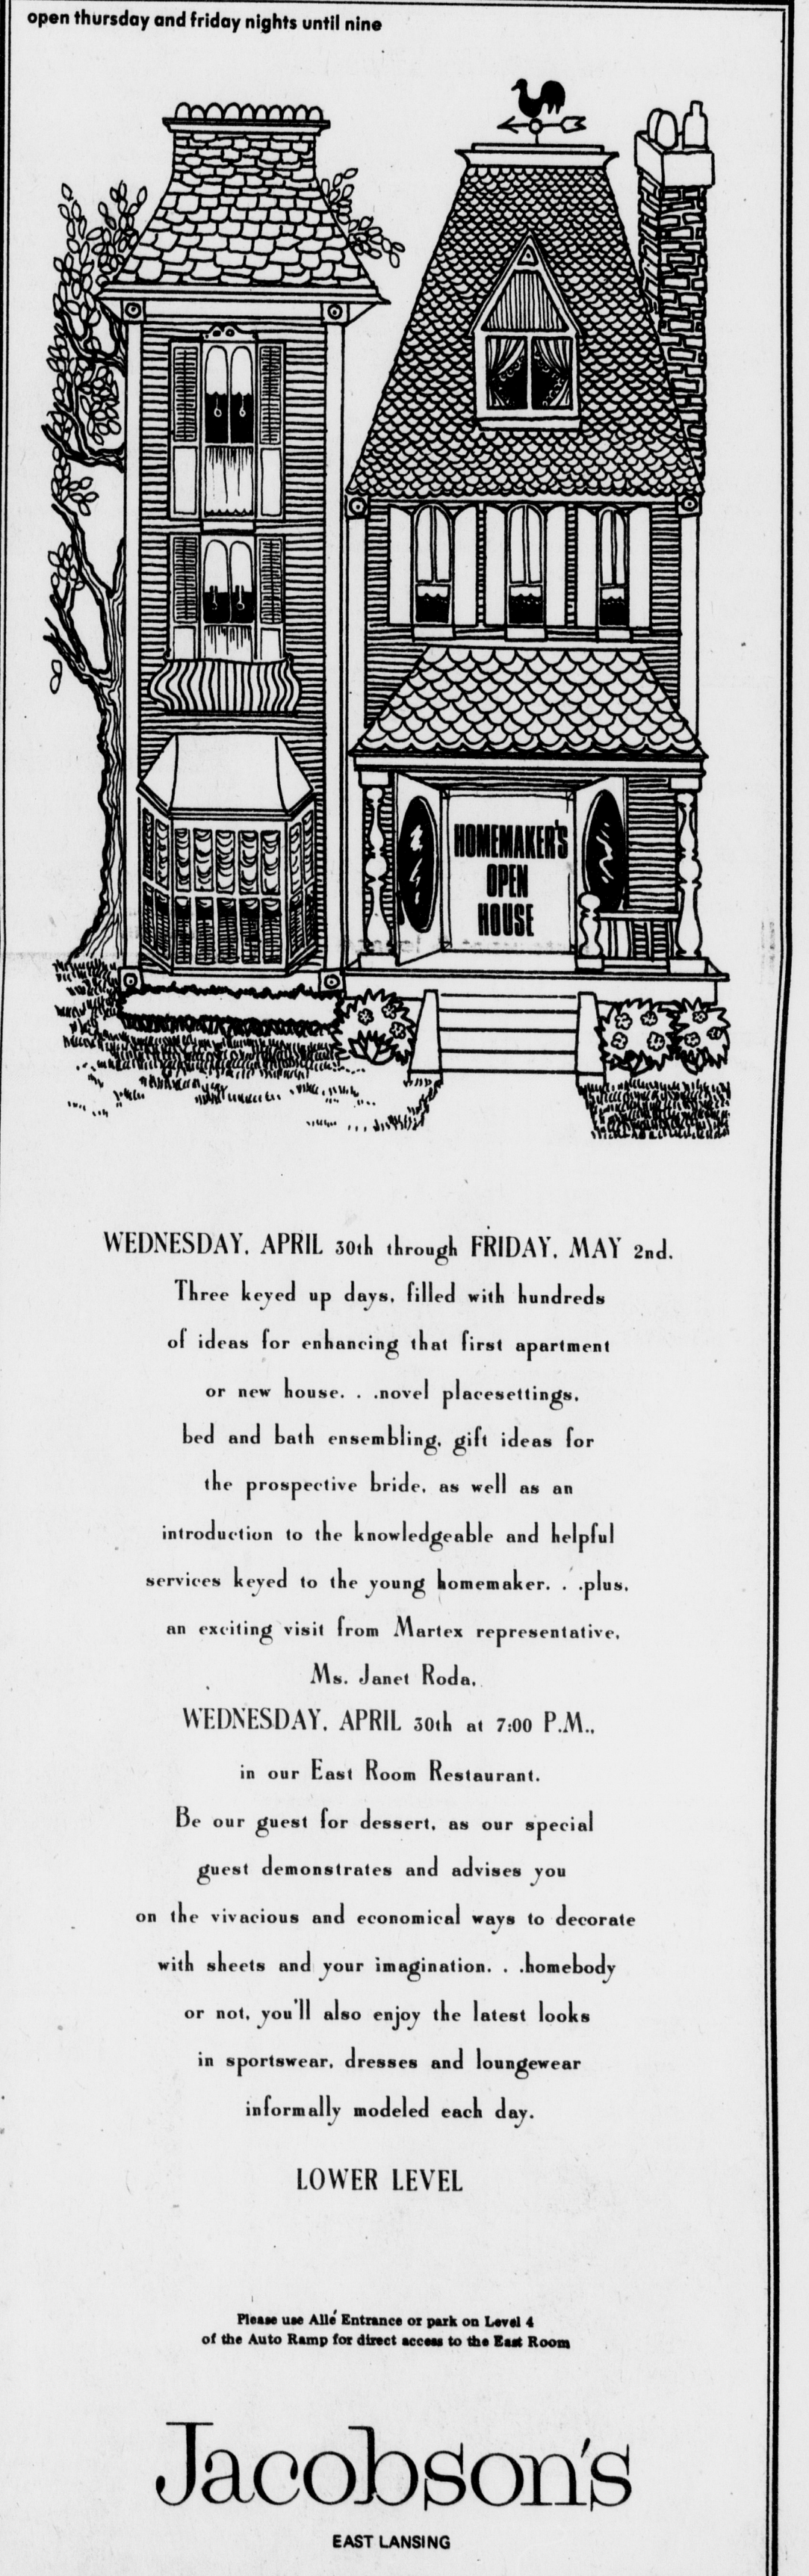 open thursday and friday nights until nine
HOMEMAKER'S
OPEN
HOUSE
WEDNESDAY, APRIL 30th through FRIDAY, MAY 2nd.
Three keyed up days, filled with hundreds
of ideas for enhancing that first apartment
or new house. . .novel placesettings,
bed and bath ensembling, gift ideas for
the prospective bride, as well as an
introduction to the knowledgeable and helpful
services keyed to the young homemaker. . .plus,
an exciting visit from Martex representative,
Ms. Janet Roda,
WEDNESDAY, APRIL 30th at 7:00 P.M.,
in our East Room Restaurant.
Be our guest for dessert, as our special
guest demonstrates and advises you
on the vivacious and economical ways to decorate
with sheets and your imagination. . .homebody
or not, you'll also enjoy the latest looks
in sportswear, dresses and loungewear
informally modeled each day.
LOWER LEVEL
Please use Allé Entrance or park on Level 4
of the Auto Ramp for direct access to the East Room
Jacobson's
EAST LANSING